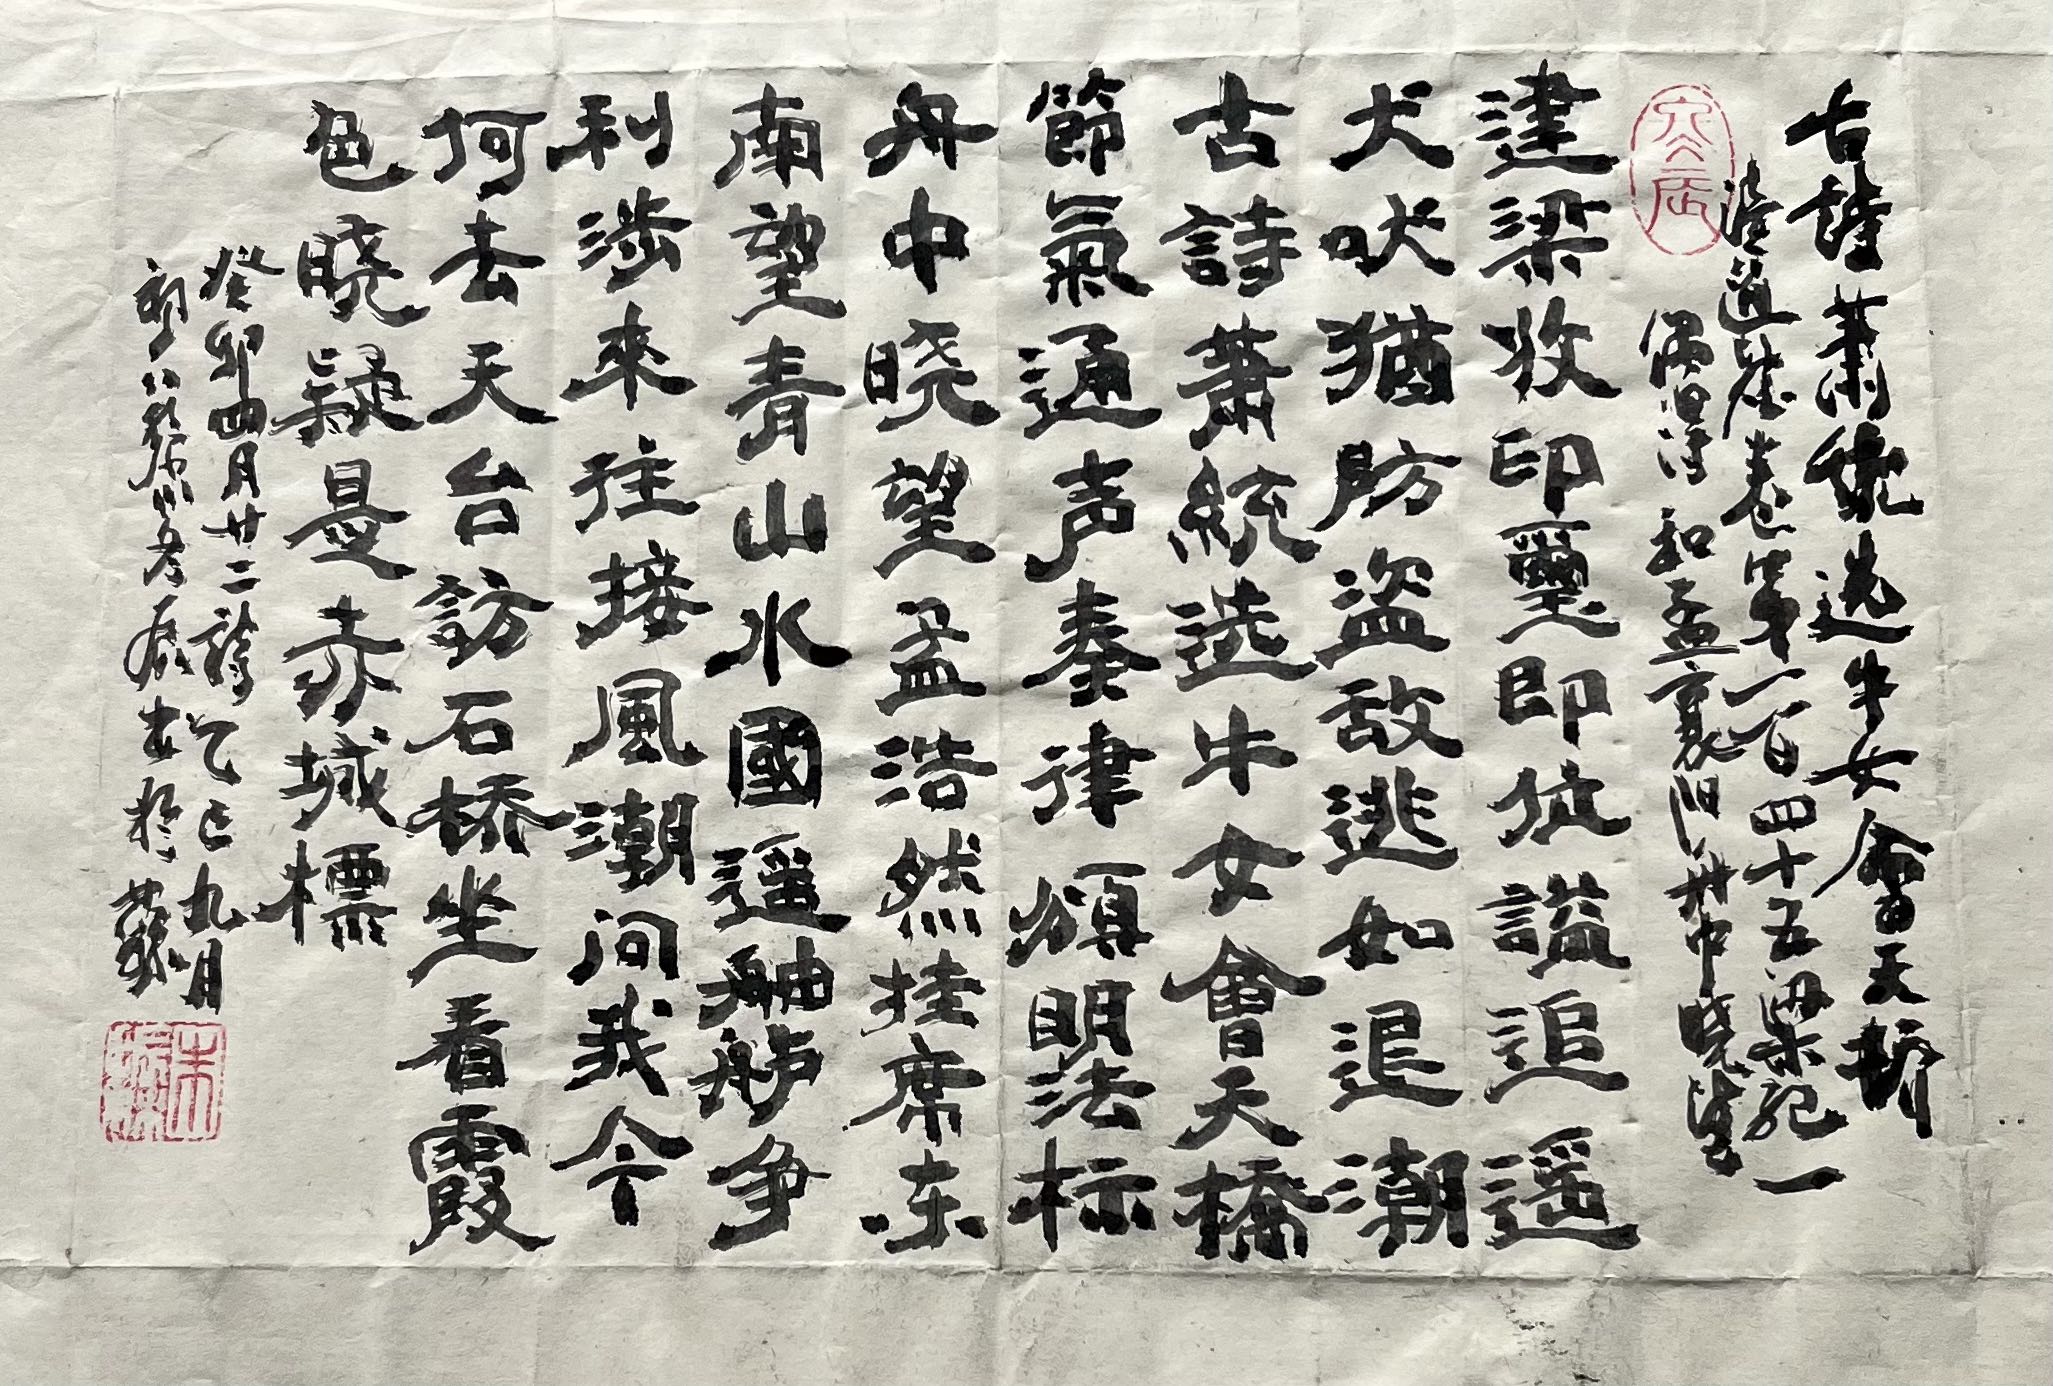 古詩蕭統选牛女會天橋
读通鉴卷第一百四十五梁纪一
偶得诗 和孟襄阳舟中晓望
建梁收印璽即位謚追遥
犬吠猶防盗敌逃如退潮
古詩蕭統选牛女會天橋
節氣通声奏律頌明法标
舟中晓望孟浩然挂席东
南望青山水國遥舳舻争
利涉來往接風潮问我今
何去天台訪石桥坐看霞
色晓疑是赤城標
癸卯四月廿二詩乙巳九月